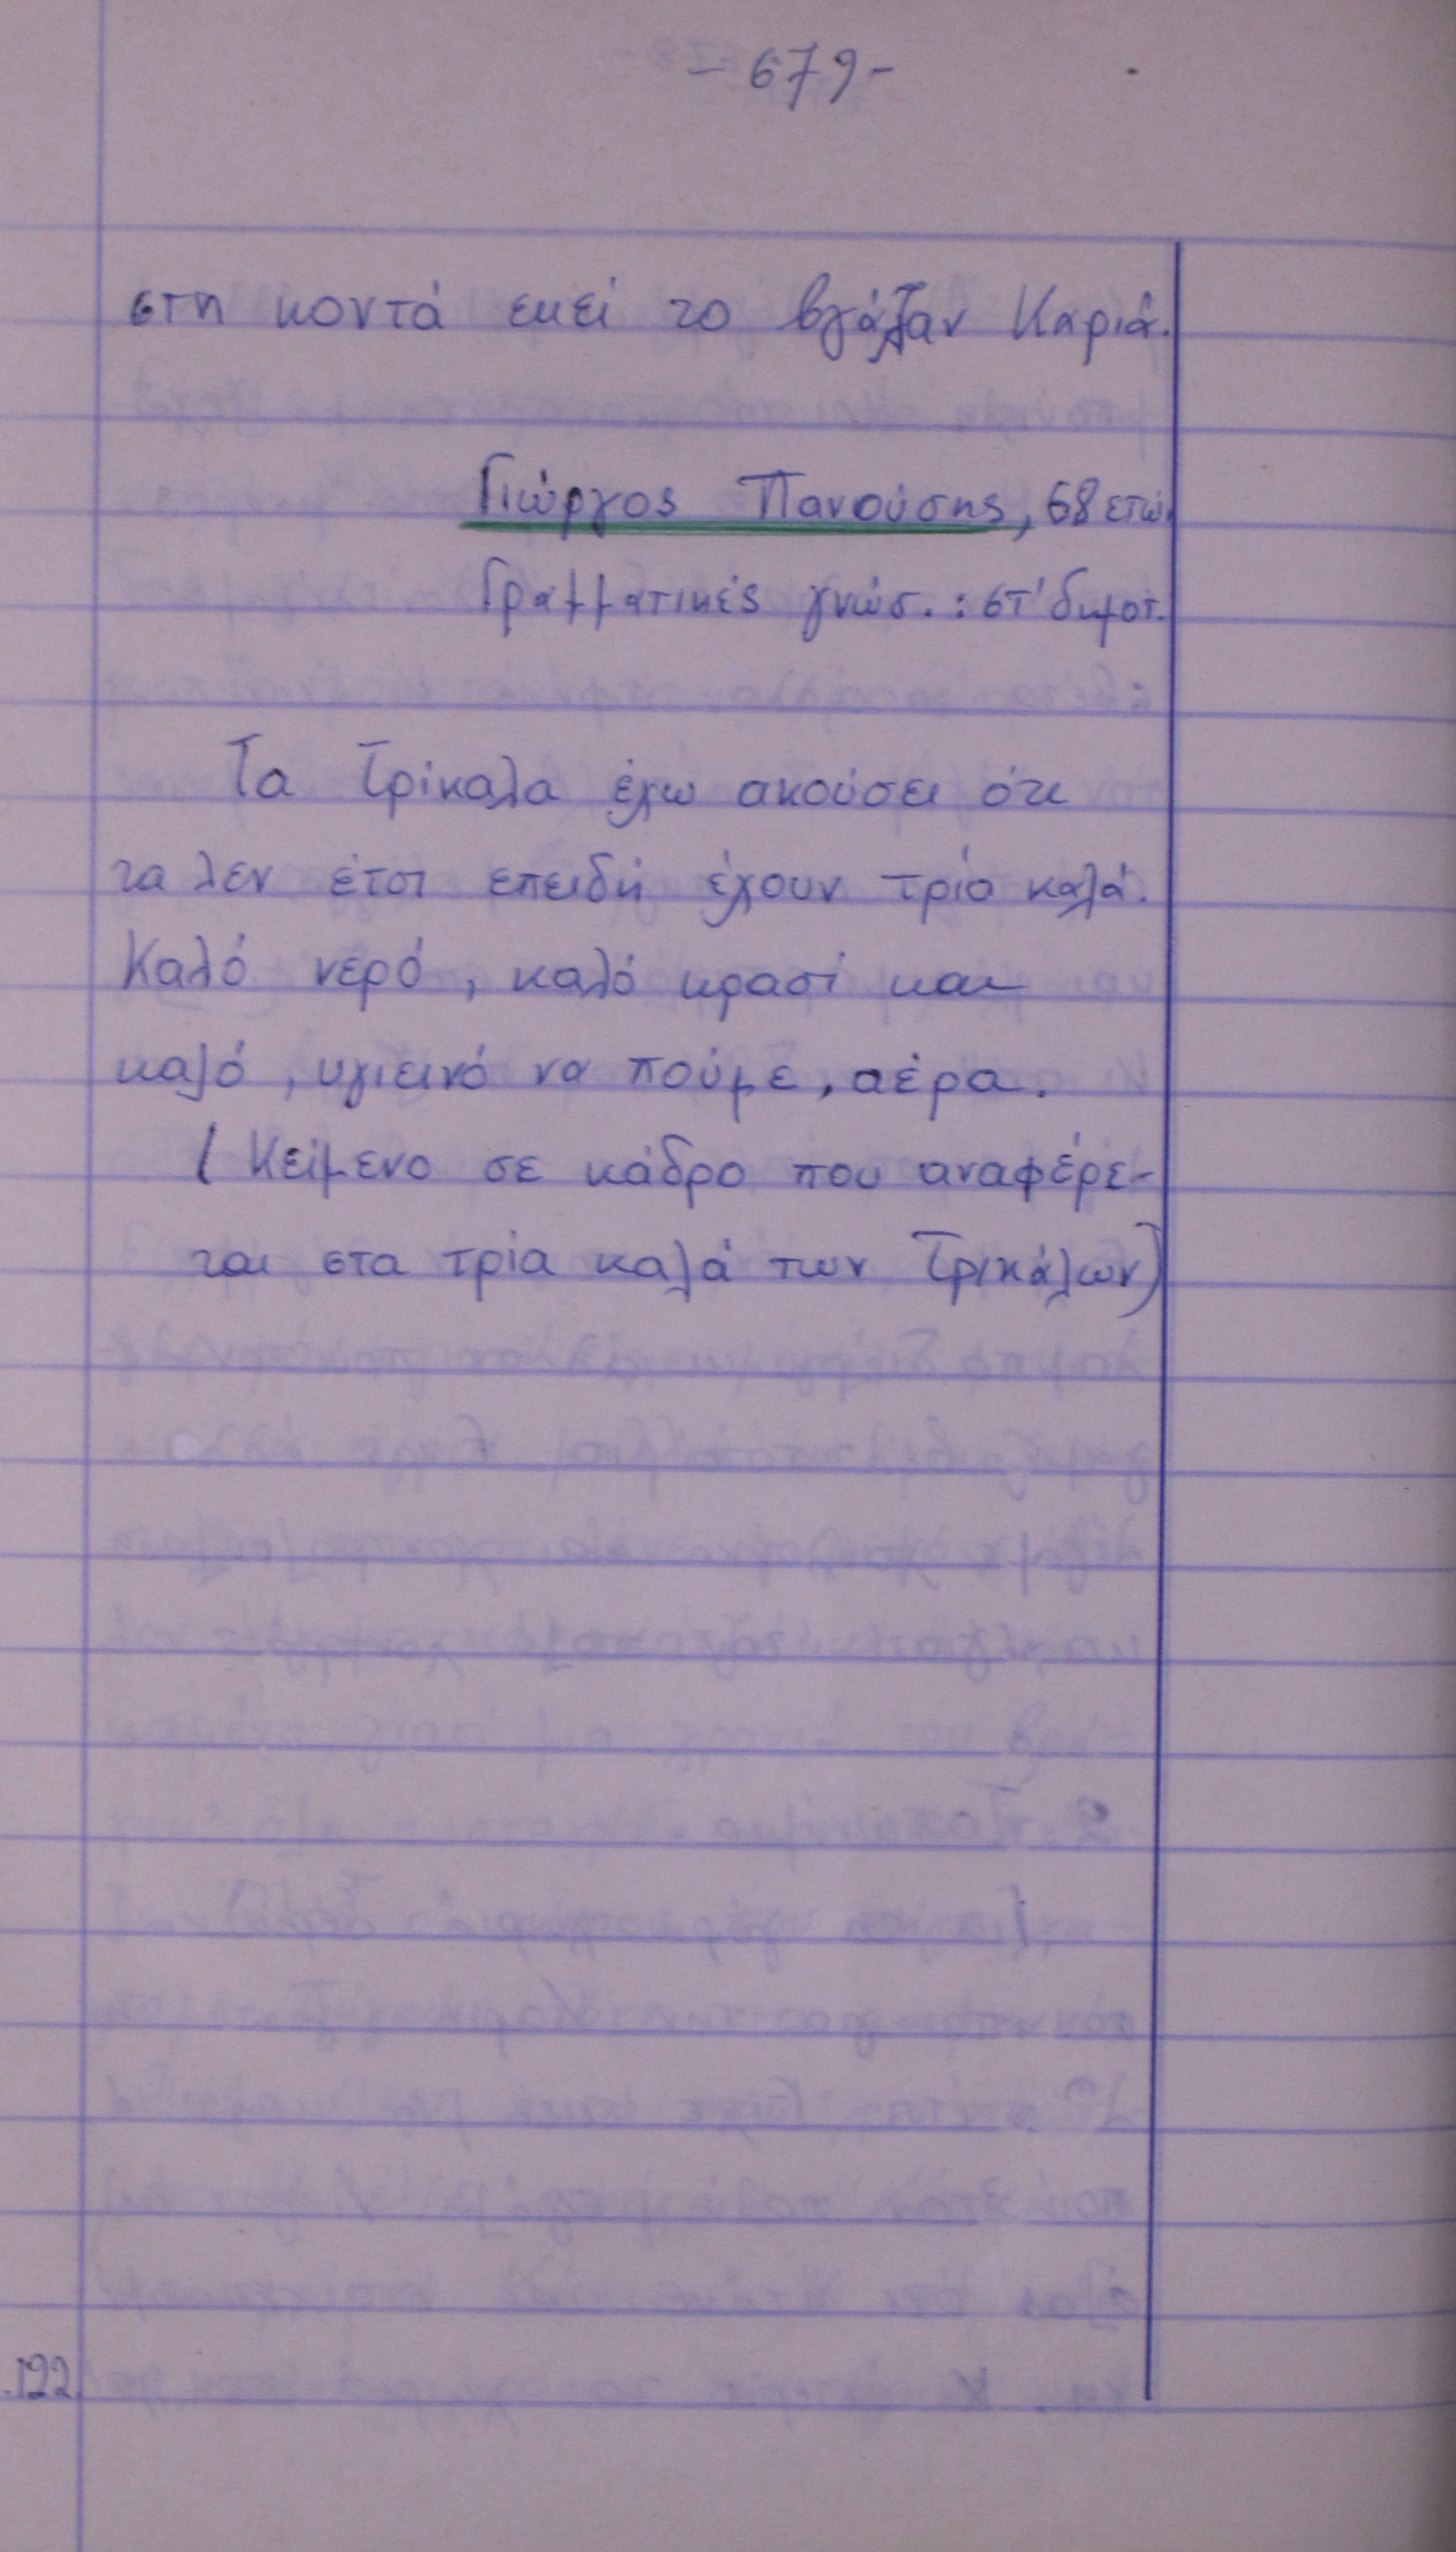 - 679 -
στη κοντά εκεί το βγάζαν Καριά.
Γιώργος Πανούσης, 68 ετών
Γραμματικές γνώσ. : στ' δημοτ.
Τα Τρίκαλα έχω ακούσει ότι
τα λεν έτσι επειδή έχουν τρία καλά.
Καλό νερό, καλό κρασί και
καλό, υγιεινό να πούμε, αέρα.
( Κείμενο σε κάδρο που αναφέρε-
ται στα τρία καλά των Τρικάλων)
.122